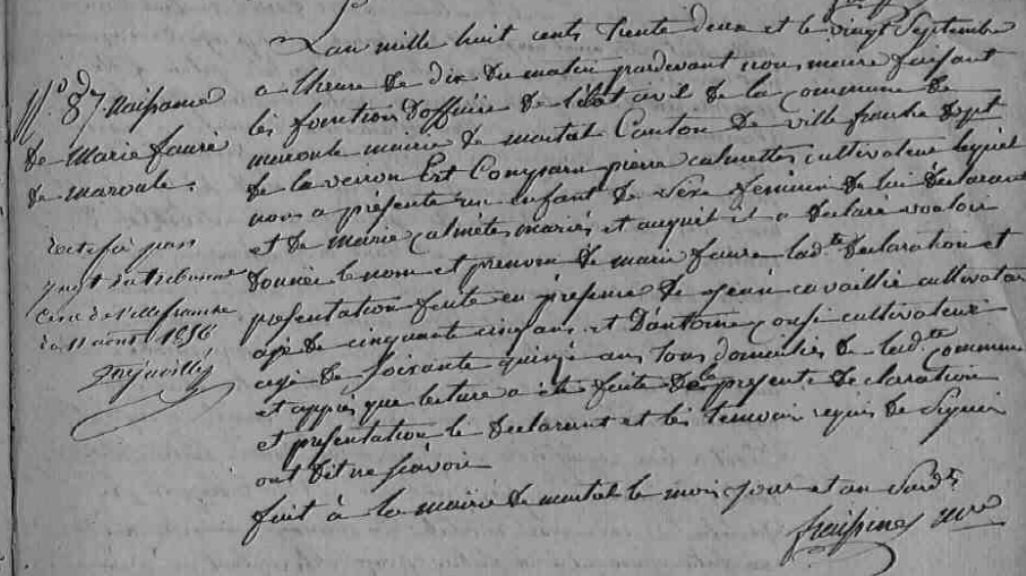 N.º 87. Naissance
de Marie faure
de maroule.
rectifié par
jugt du tribunal
Civil de Villefranche
du 11 août 1856
L'an mille huit cents trente deux et le vingt Septembre
a lheure de dix du matin pardevant nous maire faisant
les fonctions d'officier de l'état civil de la commune de
maroule mairie de martial Canton de ville franche dept
de la veiron Est Comparu pierre calmettes cultivateur lequel
nous a présenté un enfant de sexe feminin de lui déclarant
et de marie calmétes mariés et auquel il a déclaré vouloir
donner le nom et prenom de marie faure lad.te declaration et
présentation faite en présence de jean cavaillié cultivateur
agé de cinquante cinq ans et D'antoine cultivateur
agé de soixante quinze ans tous domiciliés de lad.te commune
et apprés que lecture a été faite de la presente declaration
et présentation le declarant et les temoin requis de Signer
ont dit ne sçavoir
fait à la mairie de martial le mois jour et an Susd.ts
fraissines mre